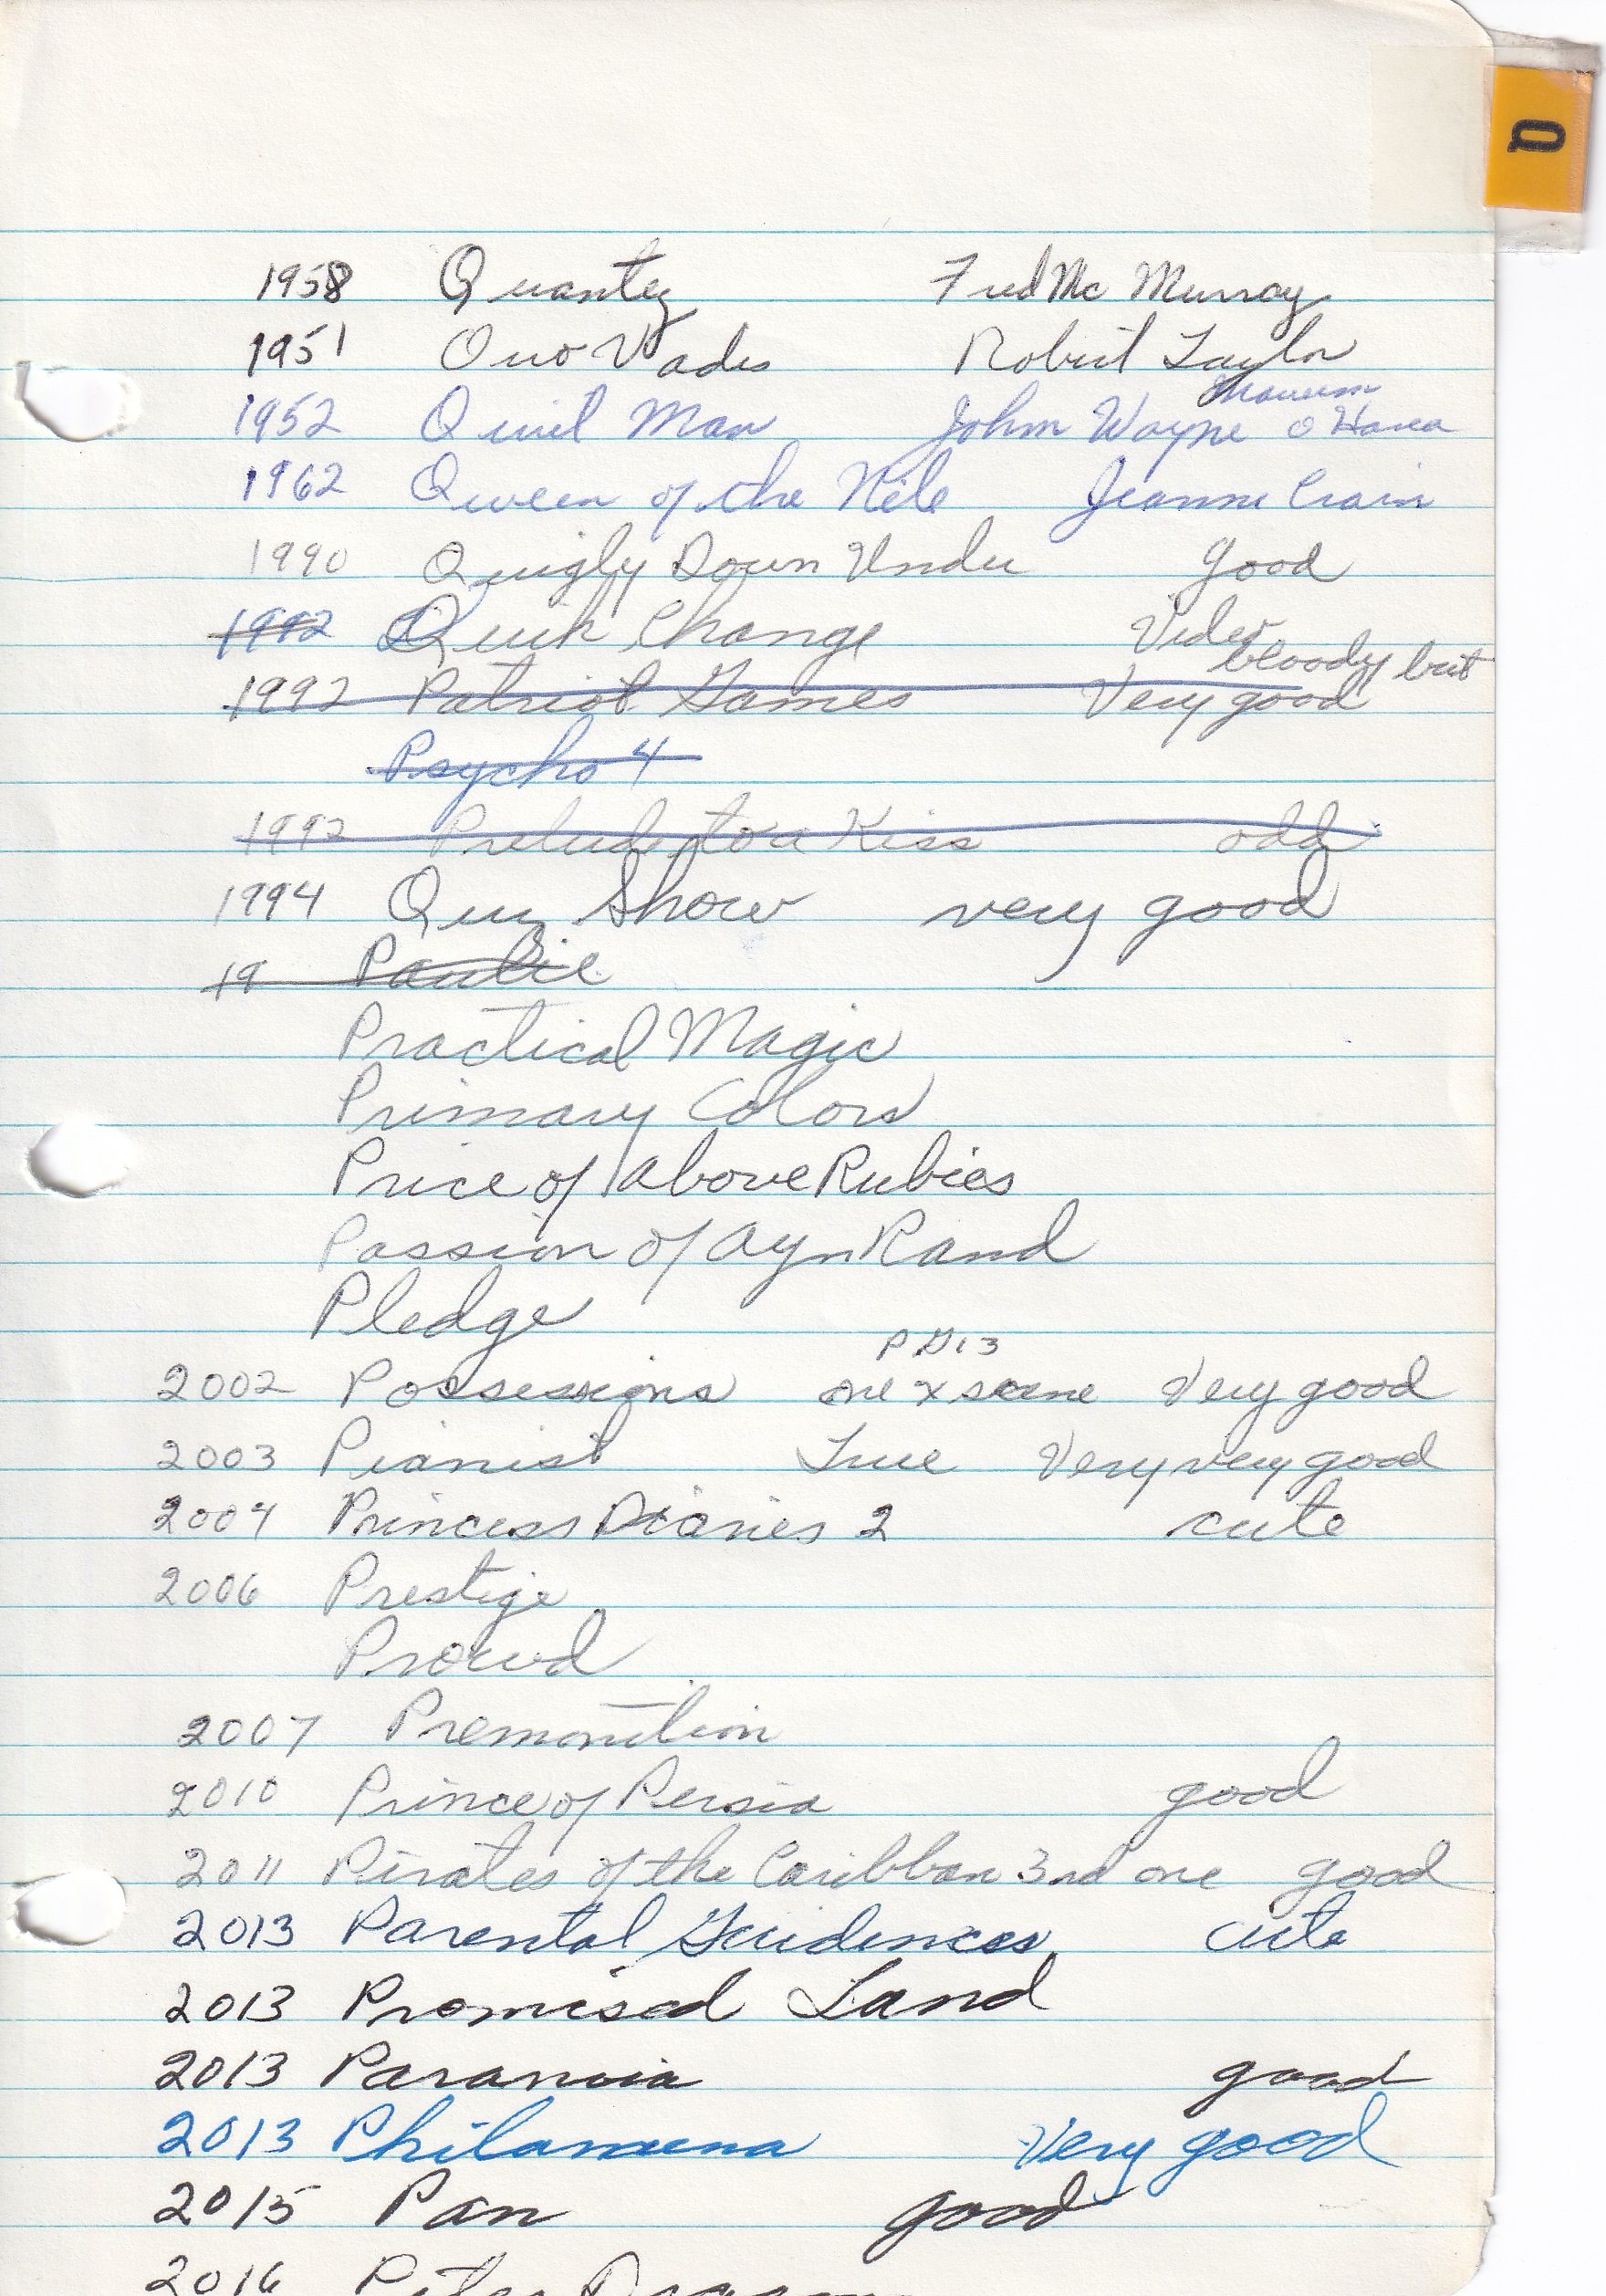 Q
1958 Quantez Fred Mc Murray
1951 Quo Vadis Robert Taylor
1952 Quiet Man John Wayne Maureen O Hara
1962 Queen of the Nile Jeanne Crain
1990 Quigly Down Under good
1992 Quik Change Video
1992 Patriot Games bloody but Very good
Psycho 4
1992 Prelude to a Kiss odd
1994 Quiz Show very good
19 Paulie
Practical Magic
Primary Colors
Price of above Rubies
Passion of Ayn Rand
Pledge
2002 Possessions PG13 one x scene Very good
2003 Pianist True Very very good
2004 Princess Diaries 2 cute
2006 Prestige
Proud
2007 Premonition
2010 Prince of Persia good
2011 Pirates of the Caribban 3rd one good
2013 Parental Guidences cute
2013 Promised Land
2013 Paranoia good
2013 Philameena Very good
2015 Pan good
2016 Petes Dragon